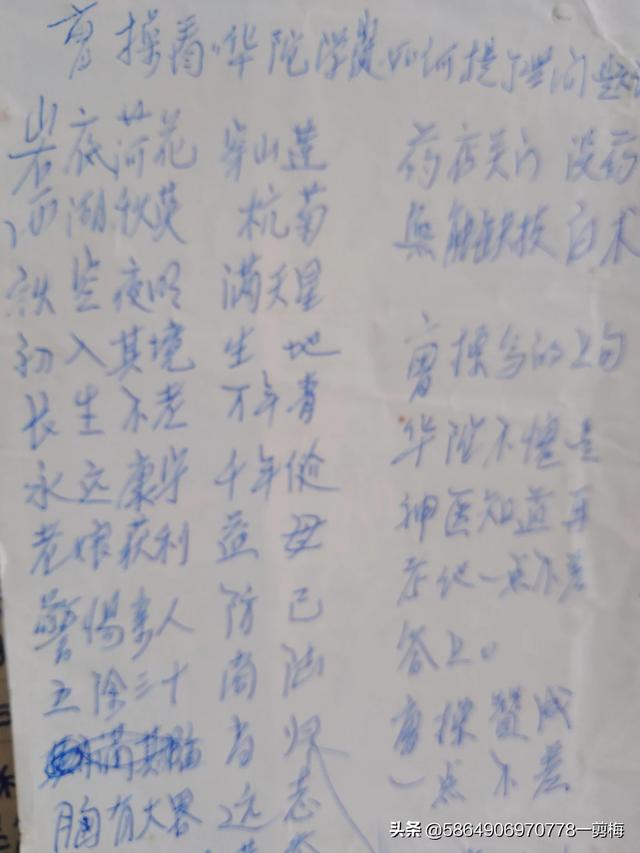 曹操看华陀学识如何提了些问题
岩底荷花 穿山莲
西湖秋英 杭菊
秋空夜明 满天星
初入其境 生地
长生不老 万年青
永远康乐 千年健
老娘获利 益母
警惕家人 防己
五除三十 商陆
当归
胸有大略 远志
药店关门 没药
无能缺技 白术
曹操写的上句
华陀不愧是
神医知道
他一点不差
答上。
曹操赞成
一点不差
头条 @5864906970778一剪梅